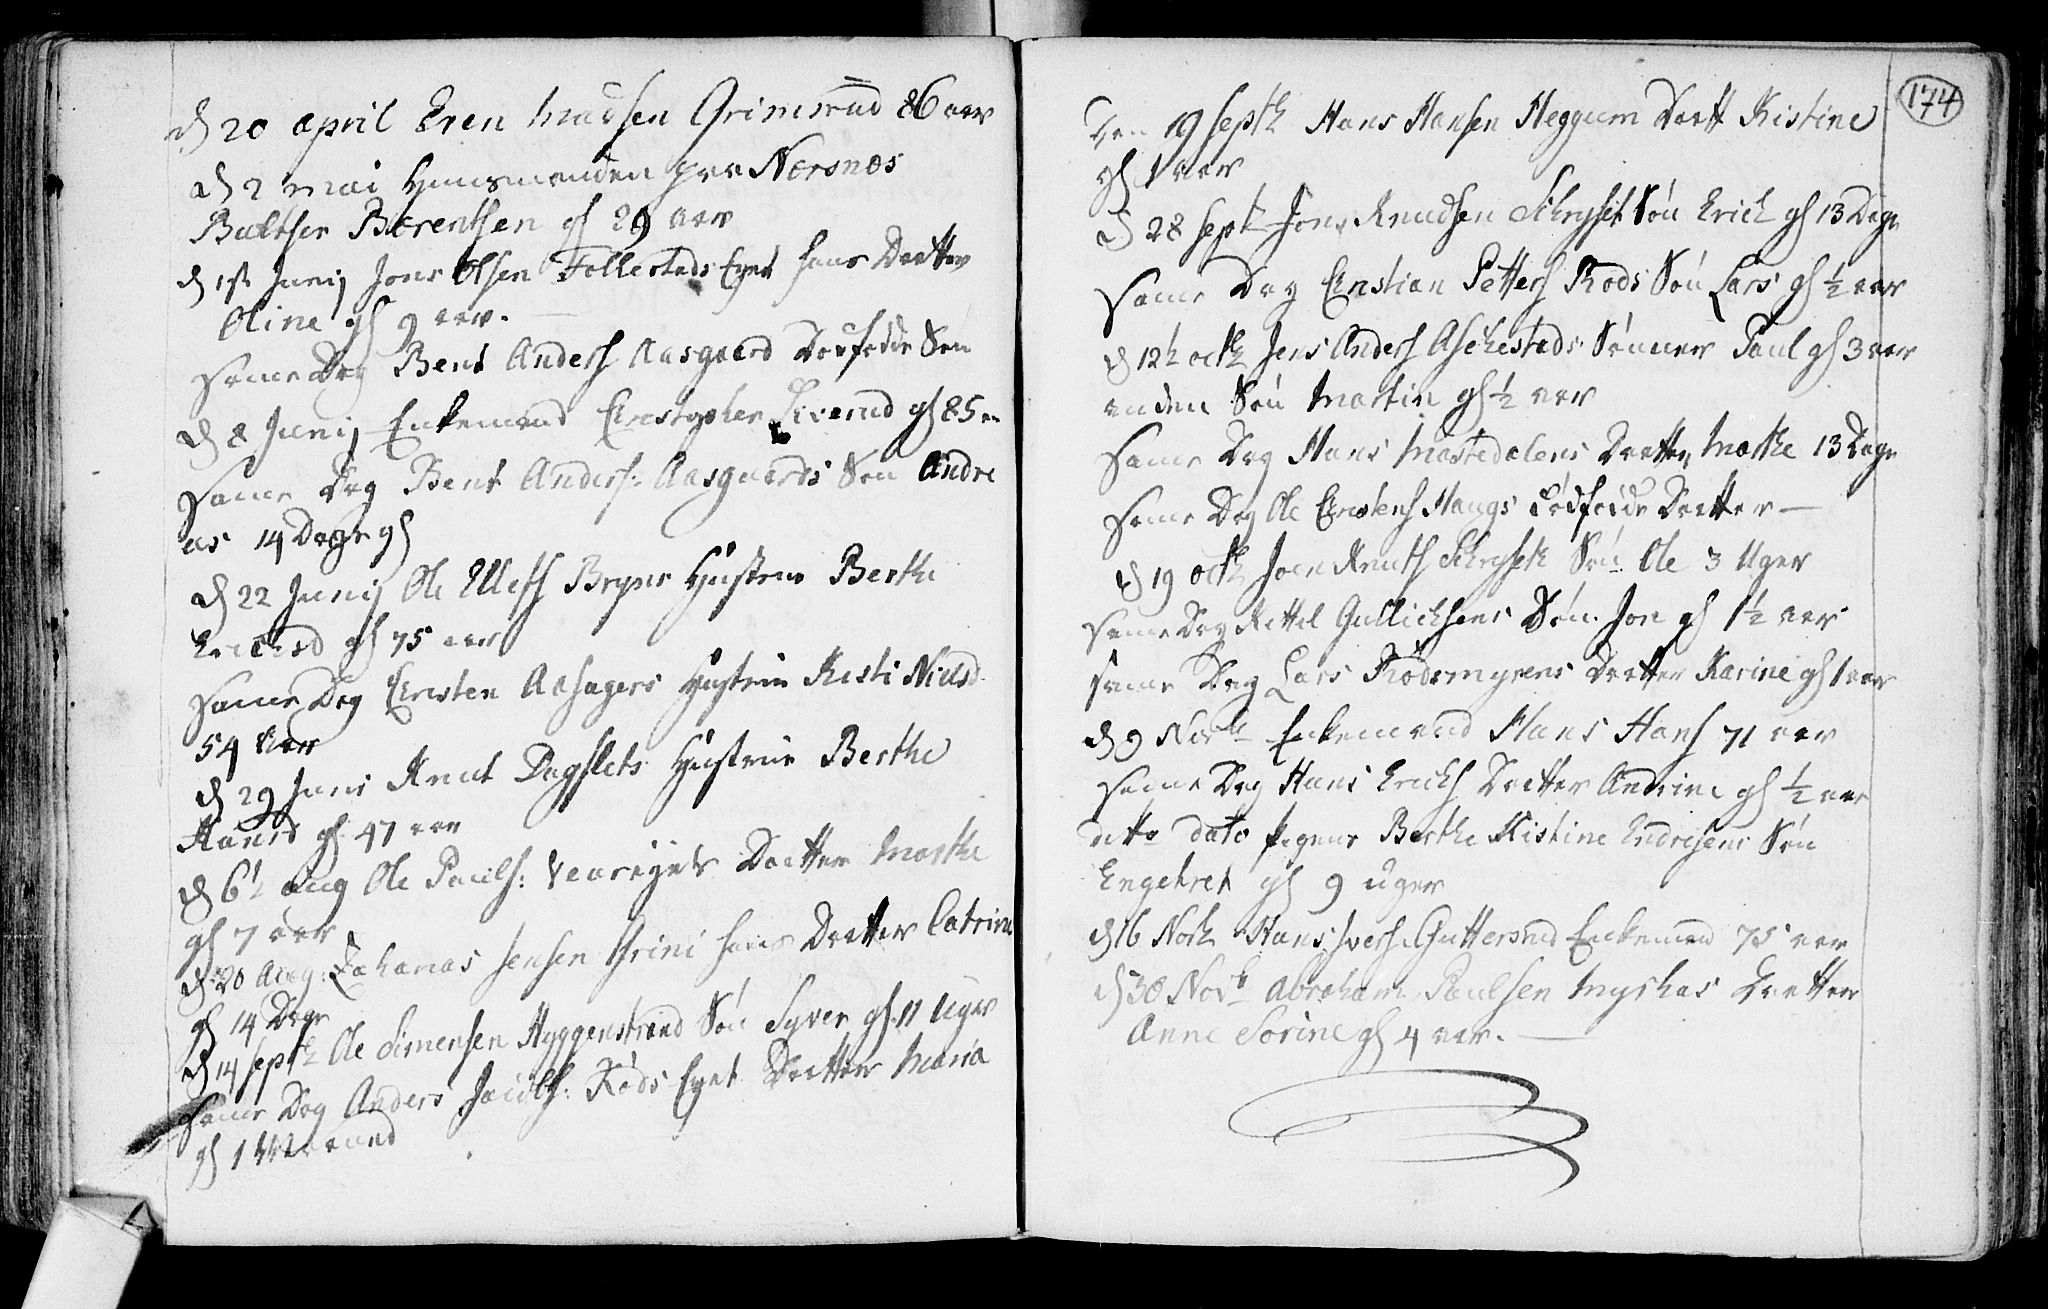 d 20 april Even Madsen Grimsrud 86 aar
d 2 mai Huusmanden fra Nærsnæs
Baltser Bærentsen gl 29 aar
d 1st Junij Jons Olsen Follestads Eyet hans Datter
Oline gl 9 aar.
Same Dag Bent Anders Aasgaard Dødfødde Søn
d 8 Junij Enkemand Christopher gl 85
Same Dag Bent Anders: Aasgaards Søn Andre
as 14 Dage gl
d 22 Junij Ole Hustrue Berthe
Ericksd gl 75 aar
Same Dag Cristen Aasagers Hustrue Kisti Nielsd
54 Aar
d 29 Juni Knut Dagslets Hustrue Berthe
Hansd gl 47 aar
d 6t aug Ole Pauls: Datter Marthe
gl 7 aar
d 20 Aug: Zakarias Jensen Grini hans Datter Catrine
gl 14 Dage
d 14 septb Ole Simensen Hyggenstrand Søn Syver gl 11 Uger
Same Dag Anders Jacobs: Røds Eyet Datter Maria
gl 1 Maaned
174
Den 19 septb Hans Hansen Heggum Datt Kistine
gl 1 aar
d 28 septb Jons Knudsen Søn Erich gl 13 Dage
Same Dag Cristian Petters Røds Søn Lars gl ½ aar
d 12t octb Jens Anders Aschestads Sønner Paul gl 3 aar
anden Søn Martin gl ½ aar
Same Dag Hans Mostedalens Datter Marthe 13 Dage
Same Dag Ole Cristens Haugs Dødfødde Datter —
d 19 octb Joen Knuts Søn Ole 3 Uger
Same Dag Kittel Gullichsens Søn Jon gl 1½ aar
Same Dag Lars Rødsmyrens Datter Karine gl 1 aar
d 9 Novb Enkemand Hans Hans 71 aar
Same Dag Hans Ericks Datter Andrine gl ½ aar
ditto dato Pigens Berthe Kistine Endresens Søn
Engebret gl 9 uger
d 16 Novb Hans Ivers: Guttersrud Enkemand 75 aar
d 30 Novb Abraham Paulsen Myhras Datter
Anne Sorine gl 4 aar. —